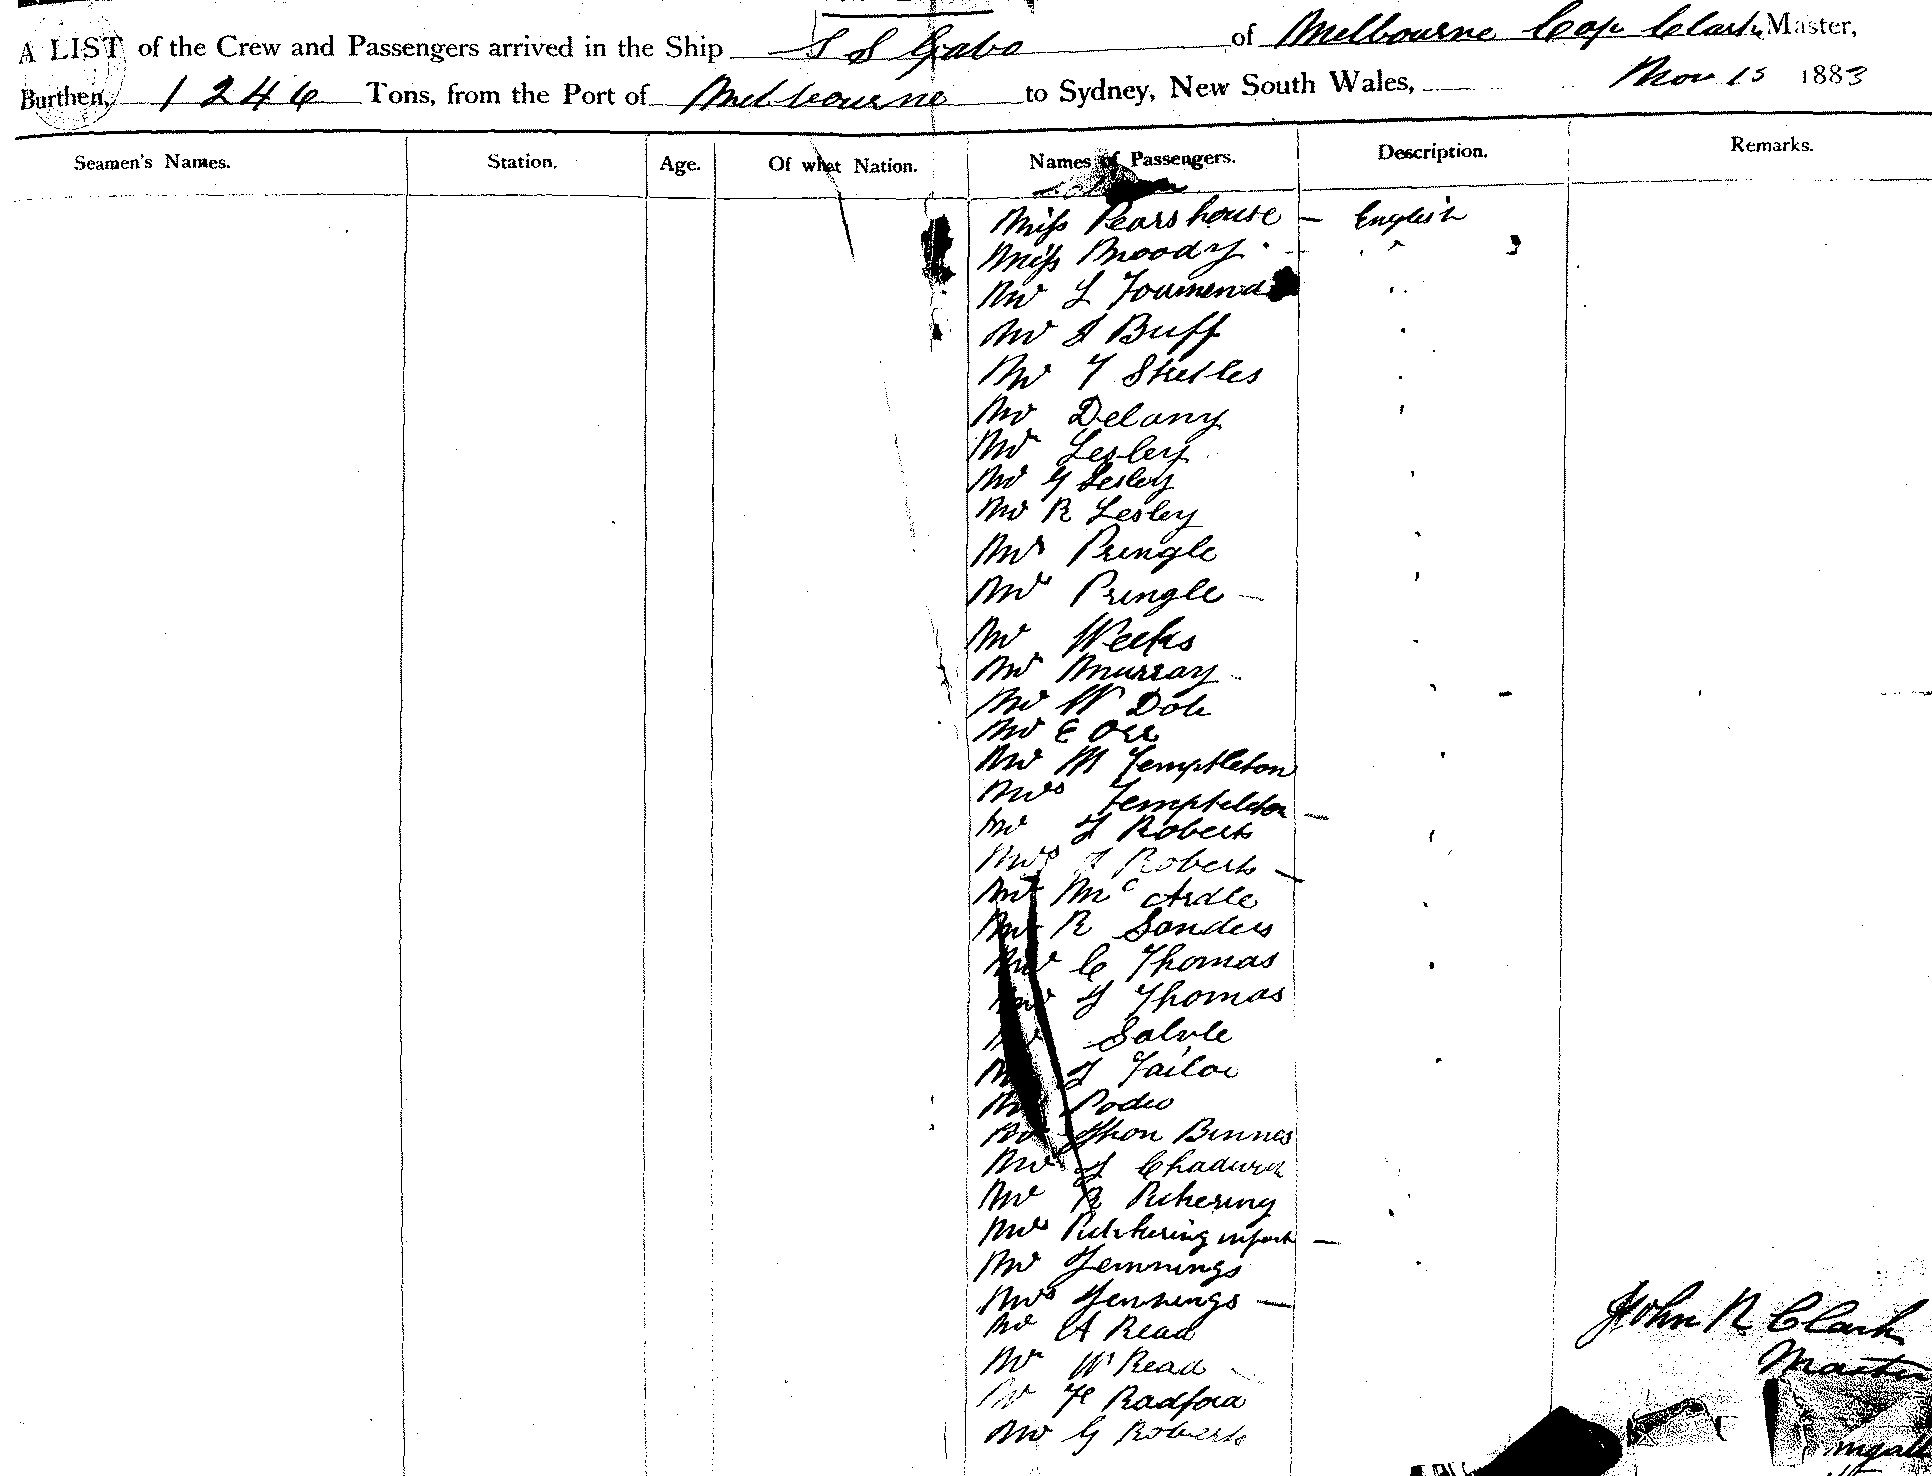 A LIST of the Crew and Passengers arrived in the Ship S S Gabo of Melbourne Cap Clark, Master,
Burthen, 1246 Tons, from the Port of Melbourne to Sydney, New South Wales, Nov 15 1883
Seamen's Names. Station. Age. Of what Nation. Names of Passengers. Description. Remarks.
Miss Pearshouse - English
Miss Moody "
Mr L Townend
Mr J Buff
Mr T
Mr Delany
Mr Lesley
Mr G Lesley
Mr R Lesley
Mrs Pringle
Mr Pringle -
Mr Weeks
Mr Murray
Mr W
Mr E Orr
Mr M Templeton
Mrs Templeton -
Mr J Roberts
Mrs J Roberts -
Mr Mc Ardle
Mr R Sanders
Mr C Thomas
Mr J Thomas
Mr
Mr J Tailor
Mr
Mr Jhon Binnes
Mr J Chadwick
Mr R Pickering
Mrs Pickering infant -
Mr Jennings
Mrs Jennings -
Mr A Read
Mr W Read
Mr H Radford
Mr G Roberts
John R Clark
Master